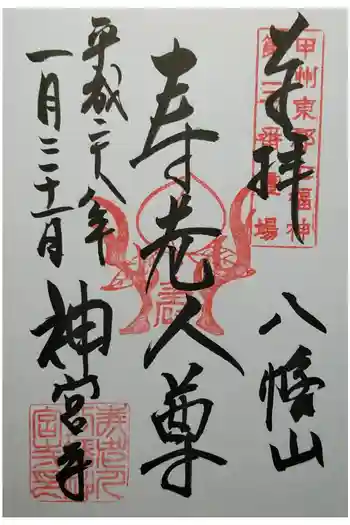 奉拝
甲州東郡七福神
番霊場
八幡山
寿老人尊
平成二十八年
一月三十一日
神宮寺